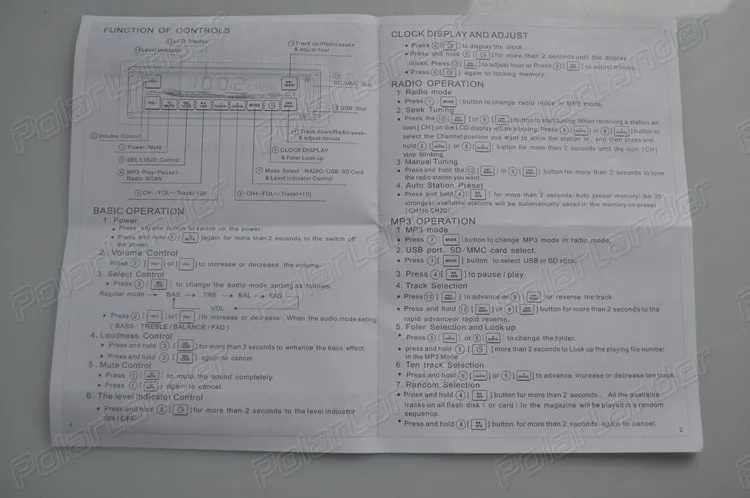 FUNCTION OF CONTROLS
LCD Display
Track up/Radio seek+
& adjust hour
Level indicator
SD/MMC Slot
USB Slot
Volume Control
Track down/Radio seek-
& adjust minute
Power/Mute
CLOCK DISPLAY
& Foler Look up
SEL/LOUD Control
MP3 Play/Pause/
Radio SCAN
Mode Select RADIO/USB/SD Card
& Level Indicator Control
BASIC OPERATION
1. Power
• Press any one button to switch on the power.
• Press and hold 1 [ ] again for more than 2 seconds to the switch off
the power.
2. Volume Control
Press 2 [ VOL+ ] or [ VOL- ] to increase or decrease the volume.
3. Select Control
• Press 3 [ ] to change the audio mode setting as follows.
Regular mode → BAS → TRE → BAL → FAD
VOL
• Press 2 [ ] or [ ] to increase or decrease. When the audio mode seting
( BASS/TREBLE/BALANCE/FAD )
4. Loudness Control
• Press and hold 3 [ ] for more than 2 seconds to enhance the bass effect.
• Press and hold 3 [ ] again to cancel
5. Mute Control
• Press 1 [ ] to mute the sound completely.
• Press 1 [ ] again to cancel.
6. The level indicator Control
• Press and hold 8 [ ] for more than 2 seconds to the level indicator
ON/OFF
1
CLOCK DISPLAY AND ADJUST
• Press 8 [ ] to display the clock.
• Press and hold [ ] for more than 2 seconds until the display
to adjust hour or Press 9 [ ] to adjust minute.
• Press again to locking memory.
RADIO OPERATION
1. Radio mode
• Press 7 [ MODE ] button to change radio mode in MP3 mode.
2. Seek Tuning
• Press the 12 [ ] or 9 [ ] buttons to start tuning. When receiving a station, an
icon [CH] on the LCD display will be blinking. Press 5 [ ] or 6 [ ] button to
select the Channel position you want to store the station in, and then press and
hold 5 [ ] or 6 [ ] button for more than 2 seconds until the icon [CH]
stop blinking.
3. Manual Tuning
• Press and hold the 12 [ ] or 9 [ ] button for more than 2 seconds to tune
the radio station you want.
4. Auto Station Preset
• Press and hold 4 [ ] for more than 2 seconds (Auto preset memory) the 20
strongest available stations will be automatically saved in the memory on preset
MP3 OPERATION
1. MP3 mode
• Press 7 [ MODE ] button to change MP3 mode in radio mode.
2. USB port, SD/MMC card select.
• Press 7 [ MODE ] button to select USB or SD stick.
3. Press 4 [ ] to pause / play.
4. Track Selection
• Press 12 [ ] to advance or 9 [ ] or reverse the track.
• Press and hold 12 [ ] or 9 [ ] button for more than 2 seconds to the
rapid advanceor rapid reverse.
5. Foler Selection and Look up
• Press 5 [ ] or 6 [ ] to change the folder.
• press and hold 8 [ ] more than 2 seconds to Look up the playing file number
in the MP3 Mode
6. Ten track Selection
• Press and hold 5 [ ] or 6 [ ] to advance increase or decrease ten track.
7. Random Selection
• Press and hold 4 [ ] button for more than 2 seconds. All the available
tracks on all flash disk ( or card ) in the magazine will be played in a random
sequence.
• Press and hold 4 [ ] button for more than 2 seconds again to cancel.
2
Polarlander